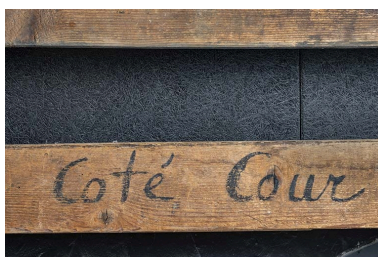 Coté Cour